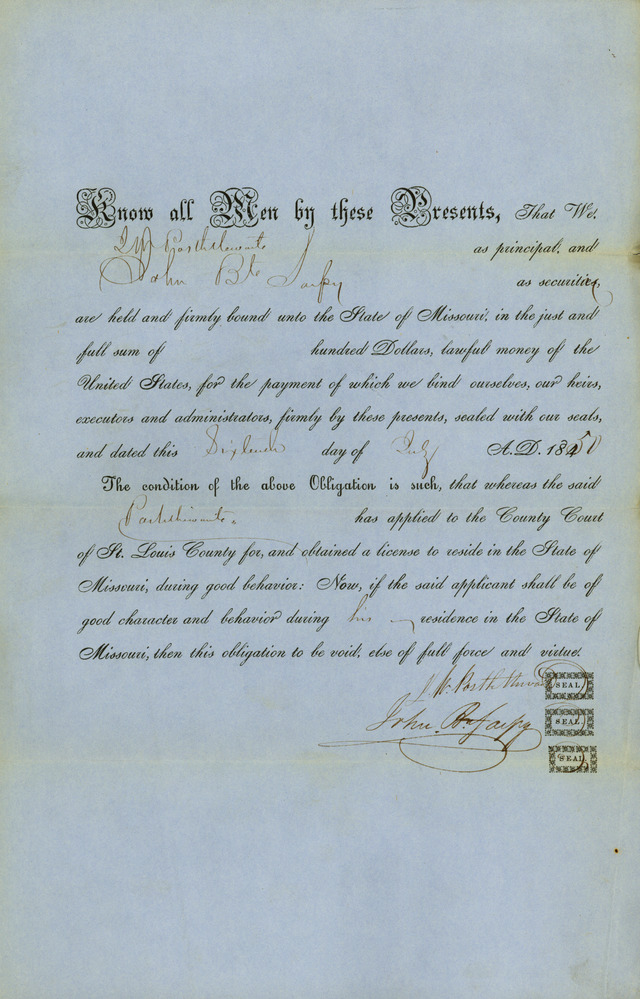 Know all Men by these Presents, That We,
J W Postlethwaite as principal, and
John Bte Sarpy as securities,
are held and firmly bound unto the State of Missouri, in the just and
full sum of hundred Dollars, lawful money of the
United States, for the payment of which we bind ourselves, our heirs,
executors and administrators, firmly by these presents, sealed with our seals,
and dated this day of July A.D. 1850
The condition of the above Obligation is such, that whereas the said
has applied to the County Court
of St. Louis County for, and obtained a license to reside in the State of
Missouri, during good behavior: Now, if the said applicant shall be of
good character and behavior during his residence in the State of
Missouri, then this obligation to be void, else of full force and virtue.
SEAL
John Bte Sarpy SEAL
SEAL